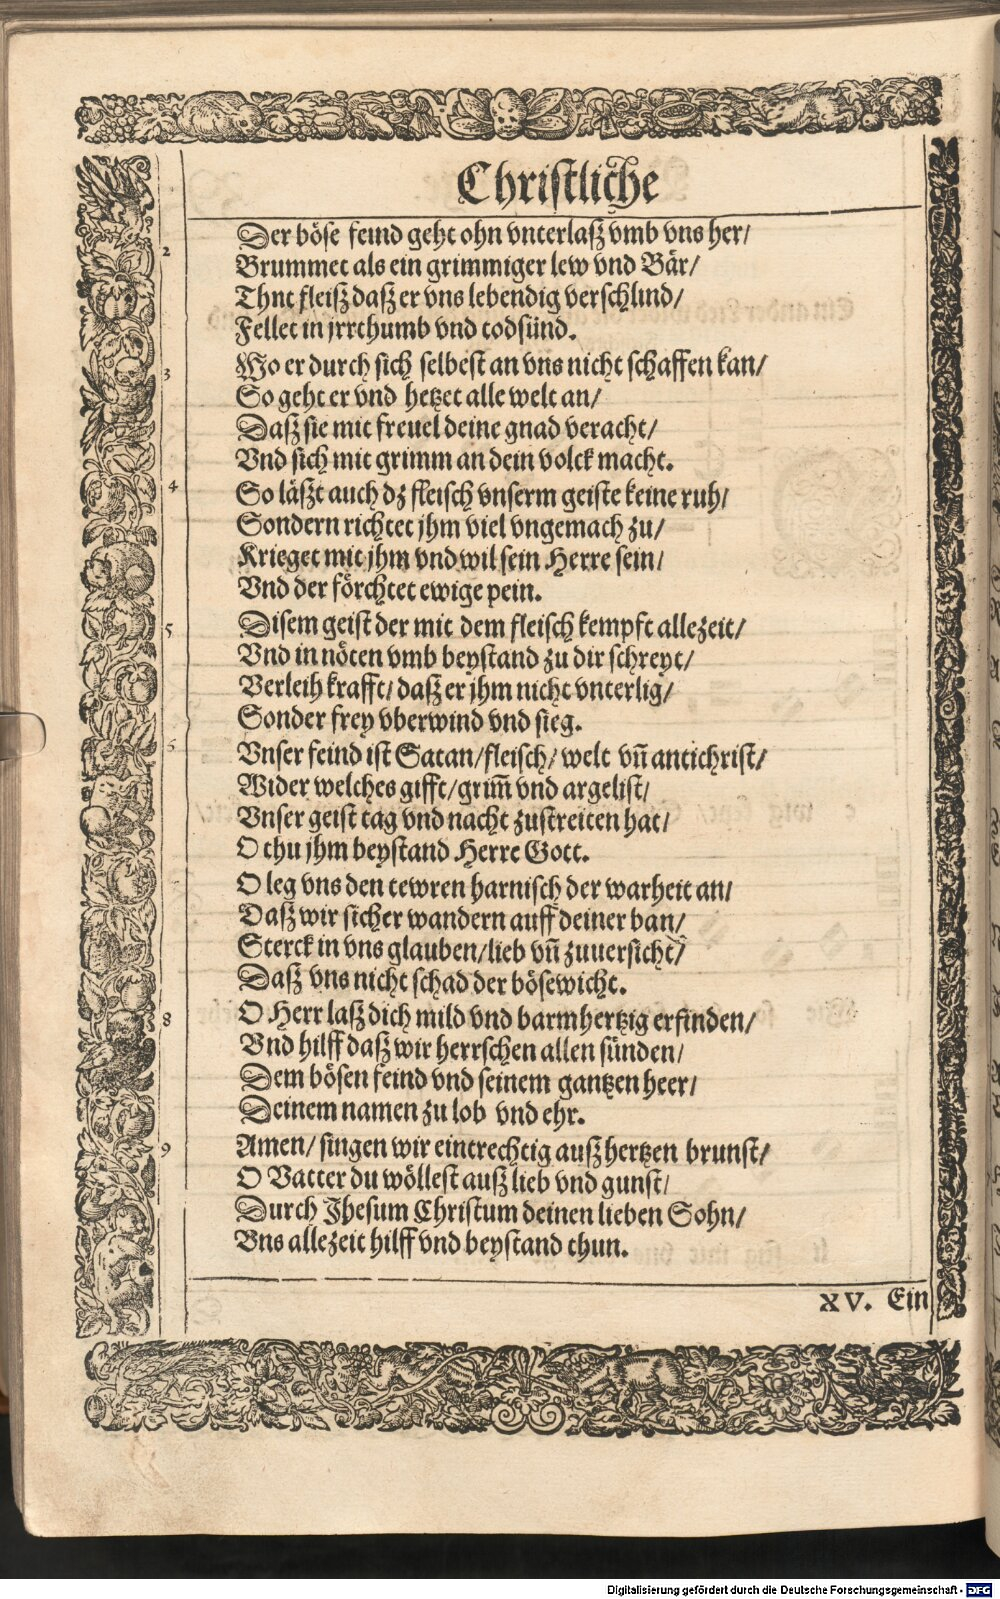 Christliche
2 Der böse feind geht ohn vnterlaß vmb vns her/
Brummet als ein grimmiger lew vnd Bär/
Thut fleiß daß er vns lebendig verschlind/
Fellet in jrrthumb vnd todsünd.
3 Wo er durch sich selbest an vns nicht schaffen kan/
So geht er vnd hetzet alle welt an/
Daß sie mit freuel deine gnad veracht/
Vnd sich mit grimm an dein volck macht.
4 So läßt auch dz fleisch vnserm geiste keine ruh/
Sondern richtet jhm viel vngemach zu/
Krieget mit jhm vnd wil sein Herre sein/
Vnd der förchtet ewige pein.
5 Disem geist der mit dem fleisch kempft allezeit/
Vnd in nöten vmb beystand zu dir schreyt/
Verleih krafft/ daß er jhm nicht vnterlig/
Sonder frey vberwind vnd sieg.
6 Vnser feind ist Satan/fleisch/ welt vñ antichrist/
Wider welches gifft/grim̃ vnd argelist/
Vnser geist tag vnd nacht zustreiten hat/
O thu jhm beystand Herre Gott.
O leg vns den tewren harnisch der warheit an/
Daß wir sicher wandern auff deiner ban/
Sterck in vns glauben/lieb vñ zuuersicht/
Daß vns nicht schad der bösewicht.
8 O Herr laß dich mild vnd barmhertzig erfinden/
Vnd hilff daß wir herrschen allen sünden/
Dem bösen feind vnd seinem gantzen heer/
Deinem namen zu lob vnd ehr.
9 Amen/ singen wir eintrechtig auß hertzen brunst/
O Vatter du wöllest auß lieb vnd gunst/
Durch Jhesum Christum deinen lieben Sohn/
Vns allezeit hilff vnd beystand thun.
XV. Ein
Digitalisierung gefördert durch die Deutsche Forschungsgemeinschaft - DFG